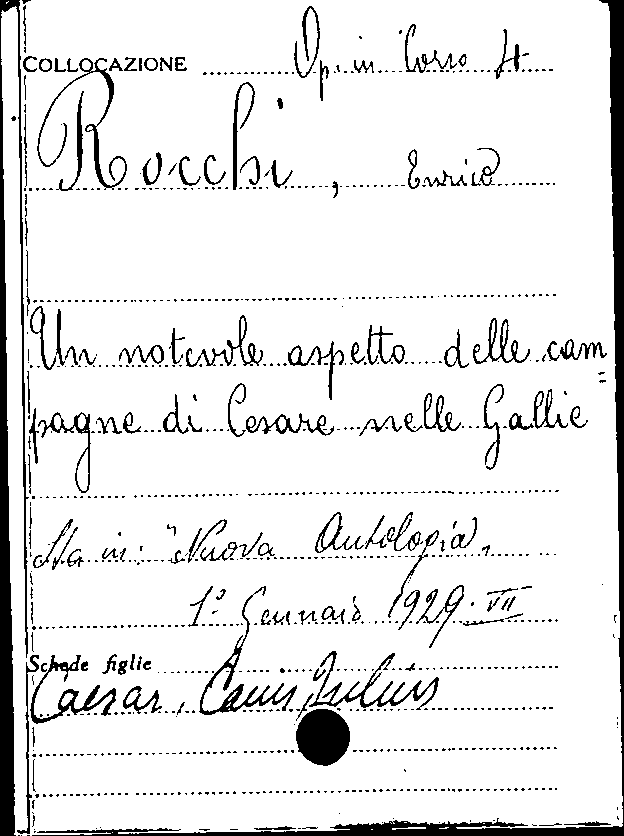 COLLOCAZIONE Op. in Corso 4
Rocchi, Enrico
Un notevole aspetto delle cam=
pagne di Cesare nelle Gallie
Sta in: "Nuova Antologia,
1º Gennaio 1929. VII
Schede figlie
Caesar, Caius Julius